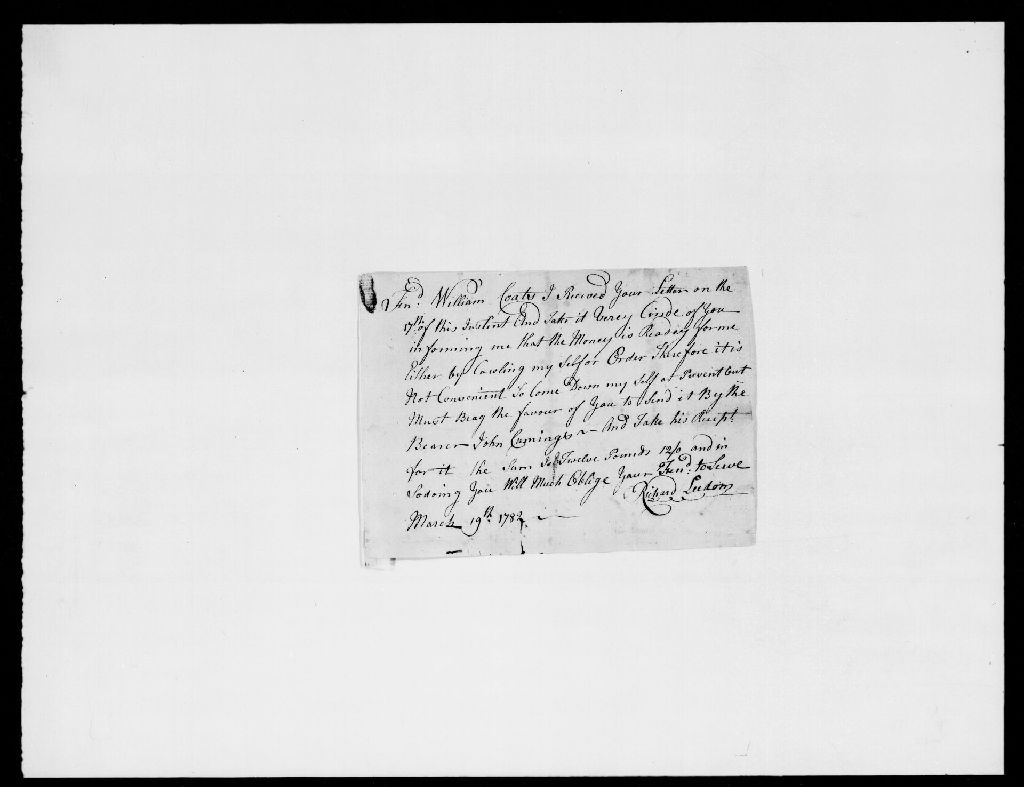 Frind William Coats I Receved Your Letter on the
17th of this Instent And Take it Verey Cinde of You
in forming me that the Money is Readey for me
Either by Cawling my Self or Order Therefore it is
Not Convenient To Come Down my Self at Present but
Must Beag the favour of You to Send it By the
Bearer John Cumings And Take his Recept
for it the Sum is Twelve Pounds 12/0 and in
So doing You Will Much Oblige Your Frend to Serve
Richard
March 19th 1782